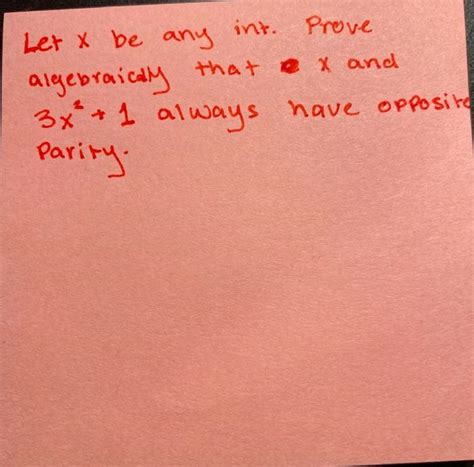 Let x be any int. Prove
algebraically that x and
3x² + 1 always have opposite
Parity.